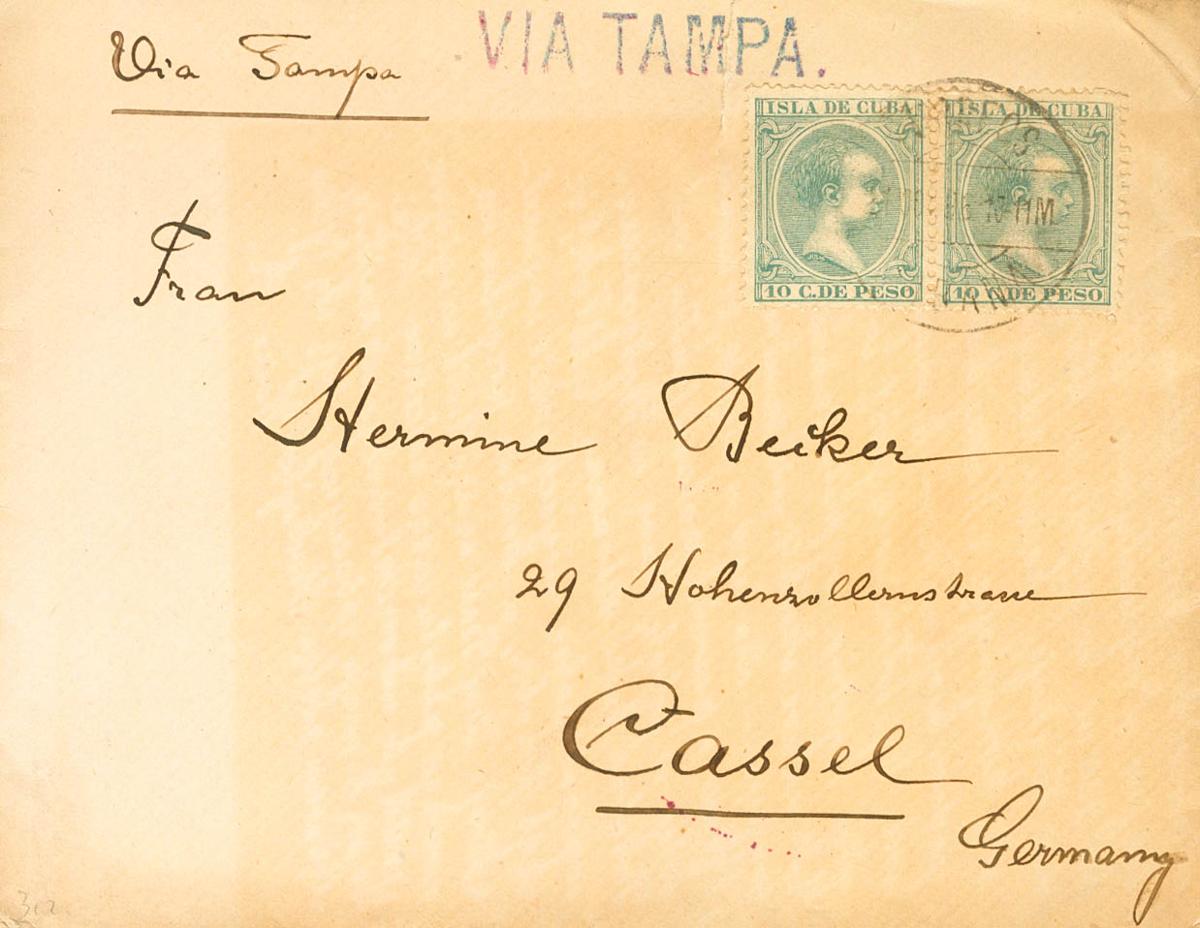 Via Tampa
VIA TAMPA.
ISLA DE CUBA
10 C. DE PESO
ISLA DE CUBA
10 C. DE PESO
Frau
Hermine Becker
29 Hohenzollernstrasse
Cassel
Germany